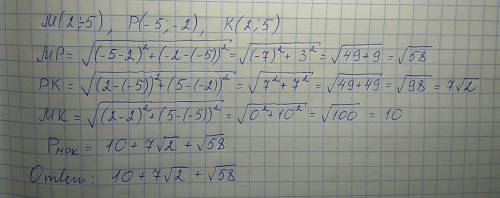 M(2;-5) P(-5;-2), K(2;5)
MP = √((-5-2)² + (-2-(-5))²) = √((-7)² + 3²) = √(49+9) = √58
PK = √((2-(-5))² + (5-(-2))²) = √(7² + 7²) = √(49+49) = √98 = 7√2
MK = √((2-2)² + (5-(-5))²) = √(0² + 10²) = √100 = 10
P_MPK = 10 + 7√2 + √58
Ответ: 10 + 7√2 + √58